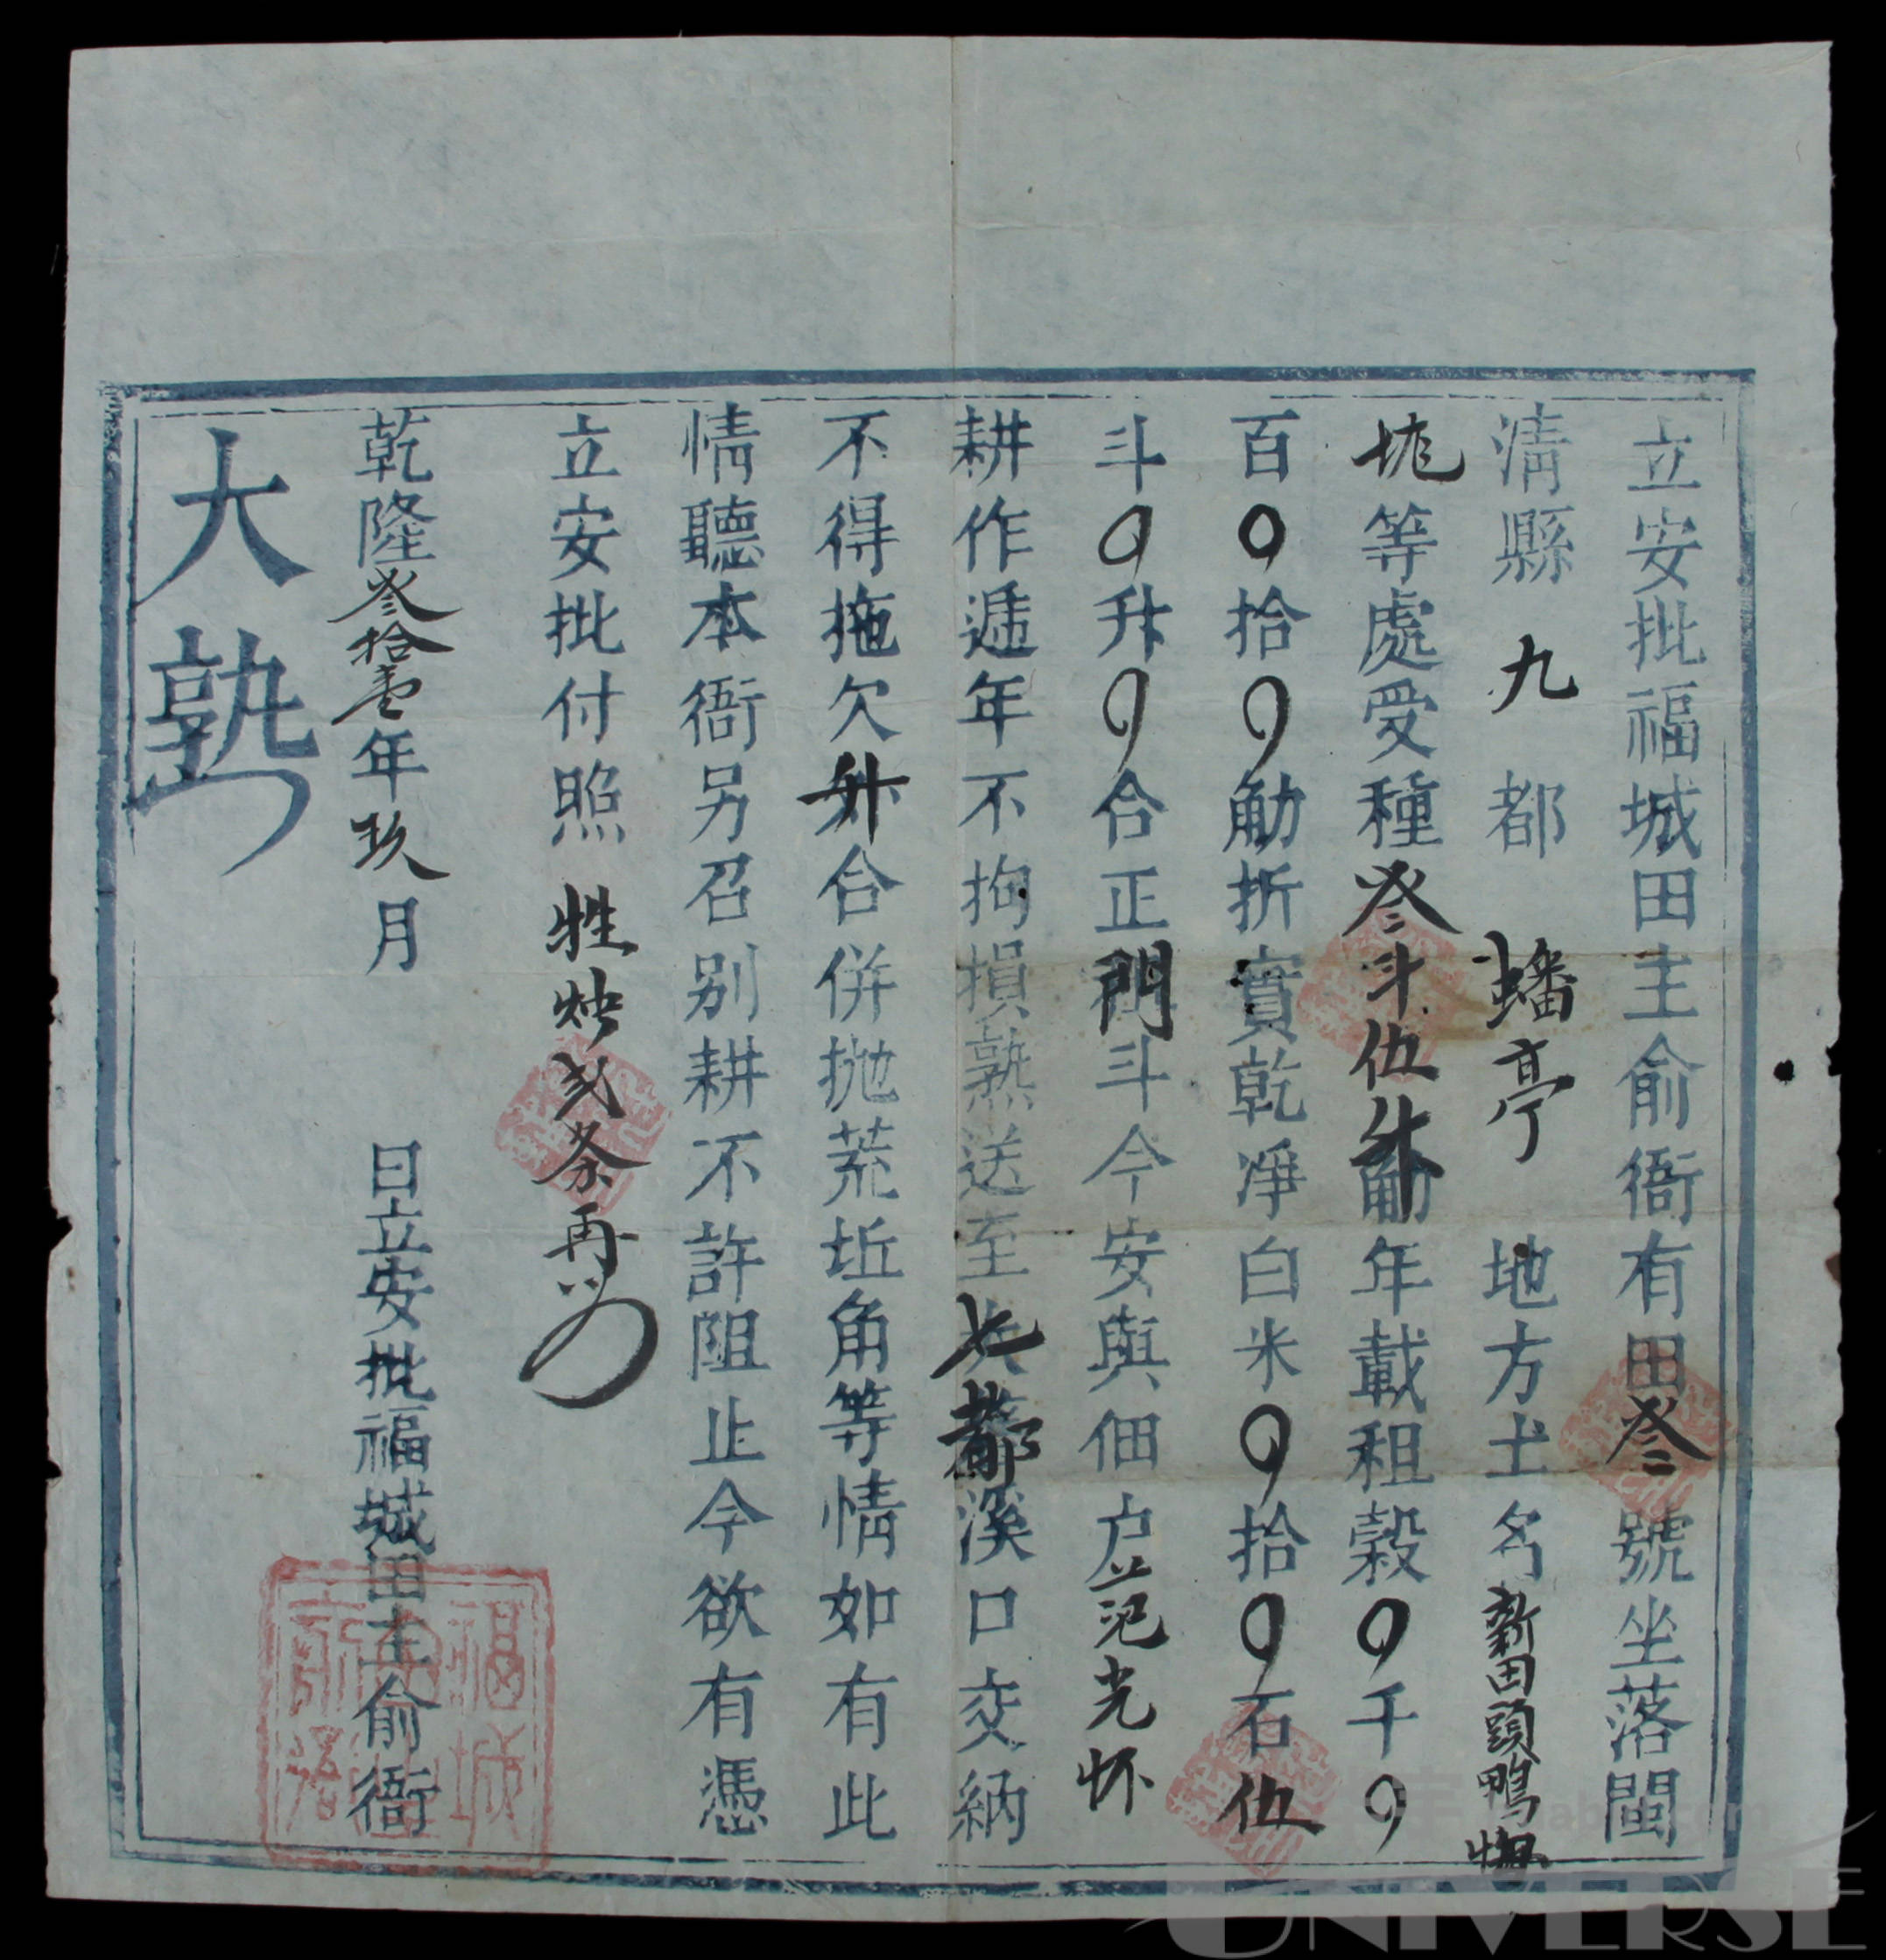 立安批福城田主俞衙有田叄號坐落閩
清縣九都蟠亭地方土名新田頭鴨
坵等處受種叄斗伍升年載租穀〇千〇
百〇拾〇觔折實乾凈白米〇拾〇石伍
斗〇升〇合正門斗今安與佃户范光怀
耕作遞年不拘損熟送至七都溪口交納
不得拖欠升合併拋荒坵角等情如有此
情聽本衙另召別耕不許阻止今欲有憑
立安批付照 牲 弍 再
乾隆叄拾壹年玖月 日立安批福城田主俞衙
大熟
福城
UNIVERSE